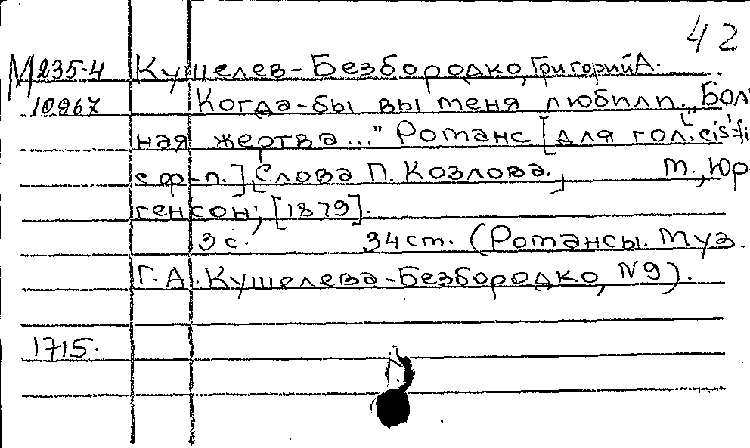 42
М 235-4 Кушелев-Безбородко, Григорий А.
10967 Когда-бы вы меня любили. "Боль
ная жертва..." Романс [для гол. cis-fi
с ф-п.] [Слова П. Козлова.] М., Юр
генсон, [1879].
3 с. 34 ст. (Романсы. Муз.
Г. А. Кушелева-Безбородко, №9).
1715.